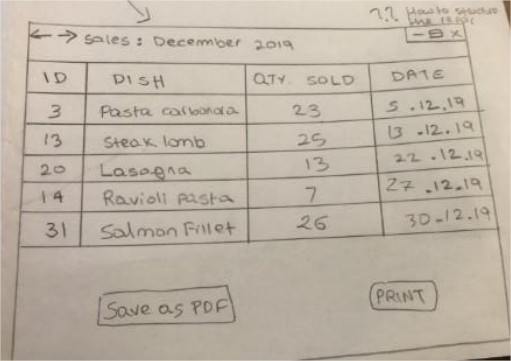 ?.? How to structure
the
← → Sales : December 2019 - X
ID DISH QTY. SOLD DATE
3 Pasta carbonara 23 5.12.19
13 Steak lamb 25 13.12.19
20 Lasagna 13 22.12.19
14 Ravioli pasta 7 27.12.19
31 Salmon Fillet 26 30.12.19
Save as PDF PRINT